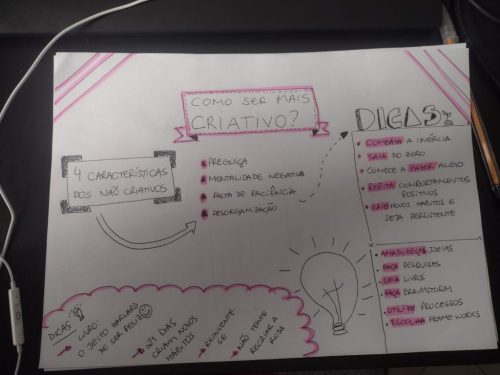 COMO SER MAIS
CRIATIVO?
4 CARACTERÍSTICAS
DOS NÃO CRIATIVOS
PREGUIÇA
MENTALIDADE NEGATIVA
FALTA DE PACIÊNCIA
DESORGANIZAÇÃO
DICAS:
COMBATA A INÉRCIA
SAIA DO ZERO
COMECE A FAZER ALGO
REPITA COMPORTAMENTOS
POSITIVOS
CRIE NOVOS HÁBITOS E
SEJA PERSISTENTE
AMADUREÇA IDEIAS
FAÇA PESQUISAS
LEIA LIVROS
FAÇA BRAINSTORM
UTILIZE PROCESSOS
ESCOLHA FRAMEWORKS
DICAS
LIVRO:
O JEITO HARVARD
DE SER FELIZ
21 DIAS
CRIAM NOVOS
HÁBITOS
REINVENTE
SE
NÃO TENTE
RECRIAR A
RODA